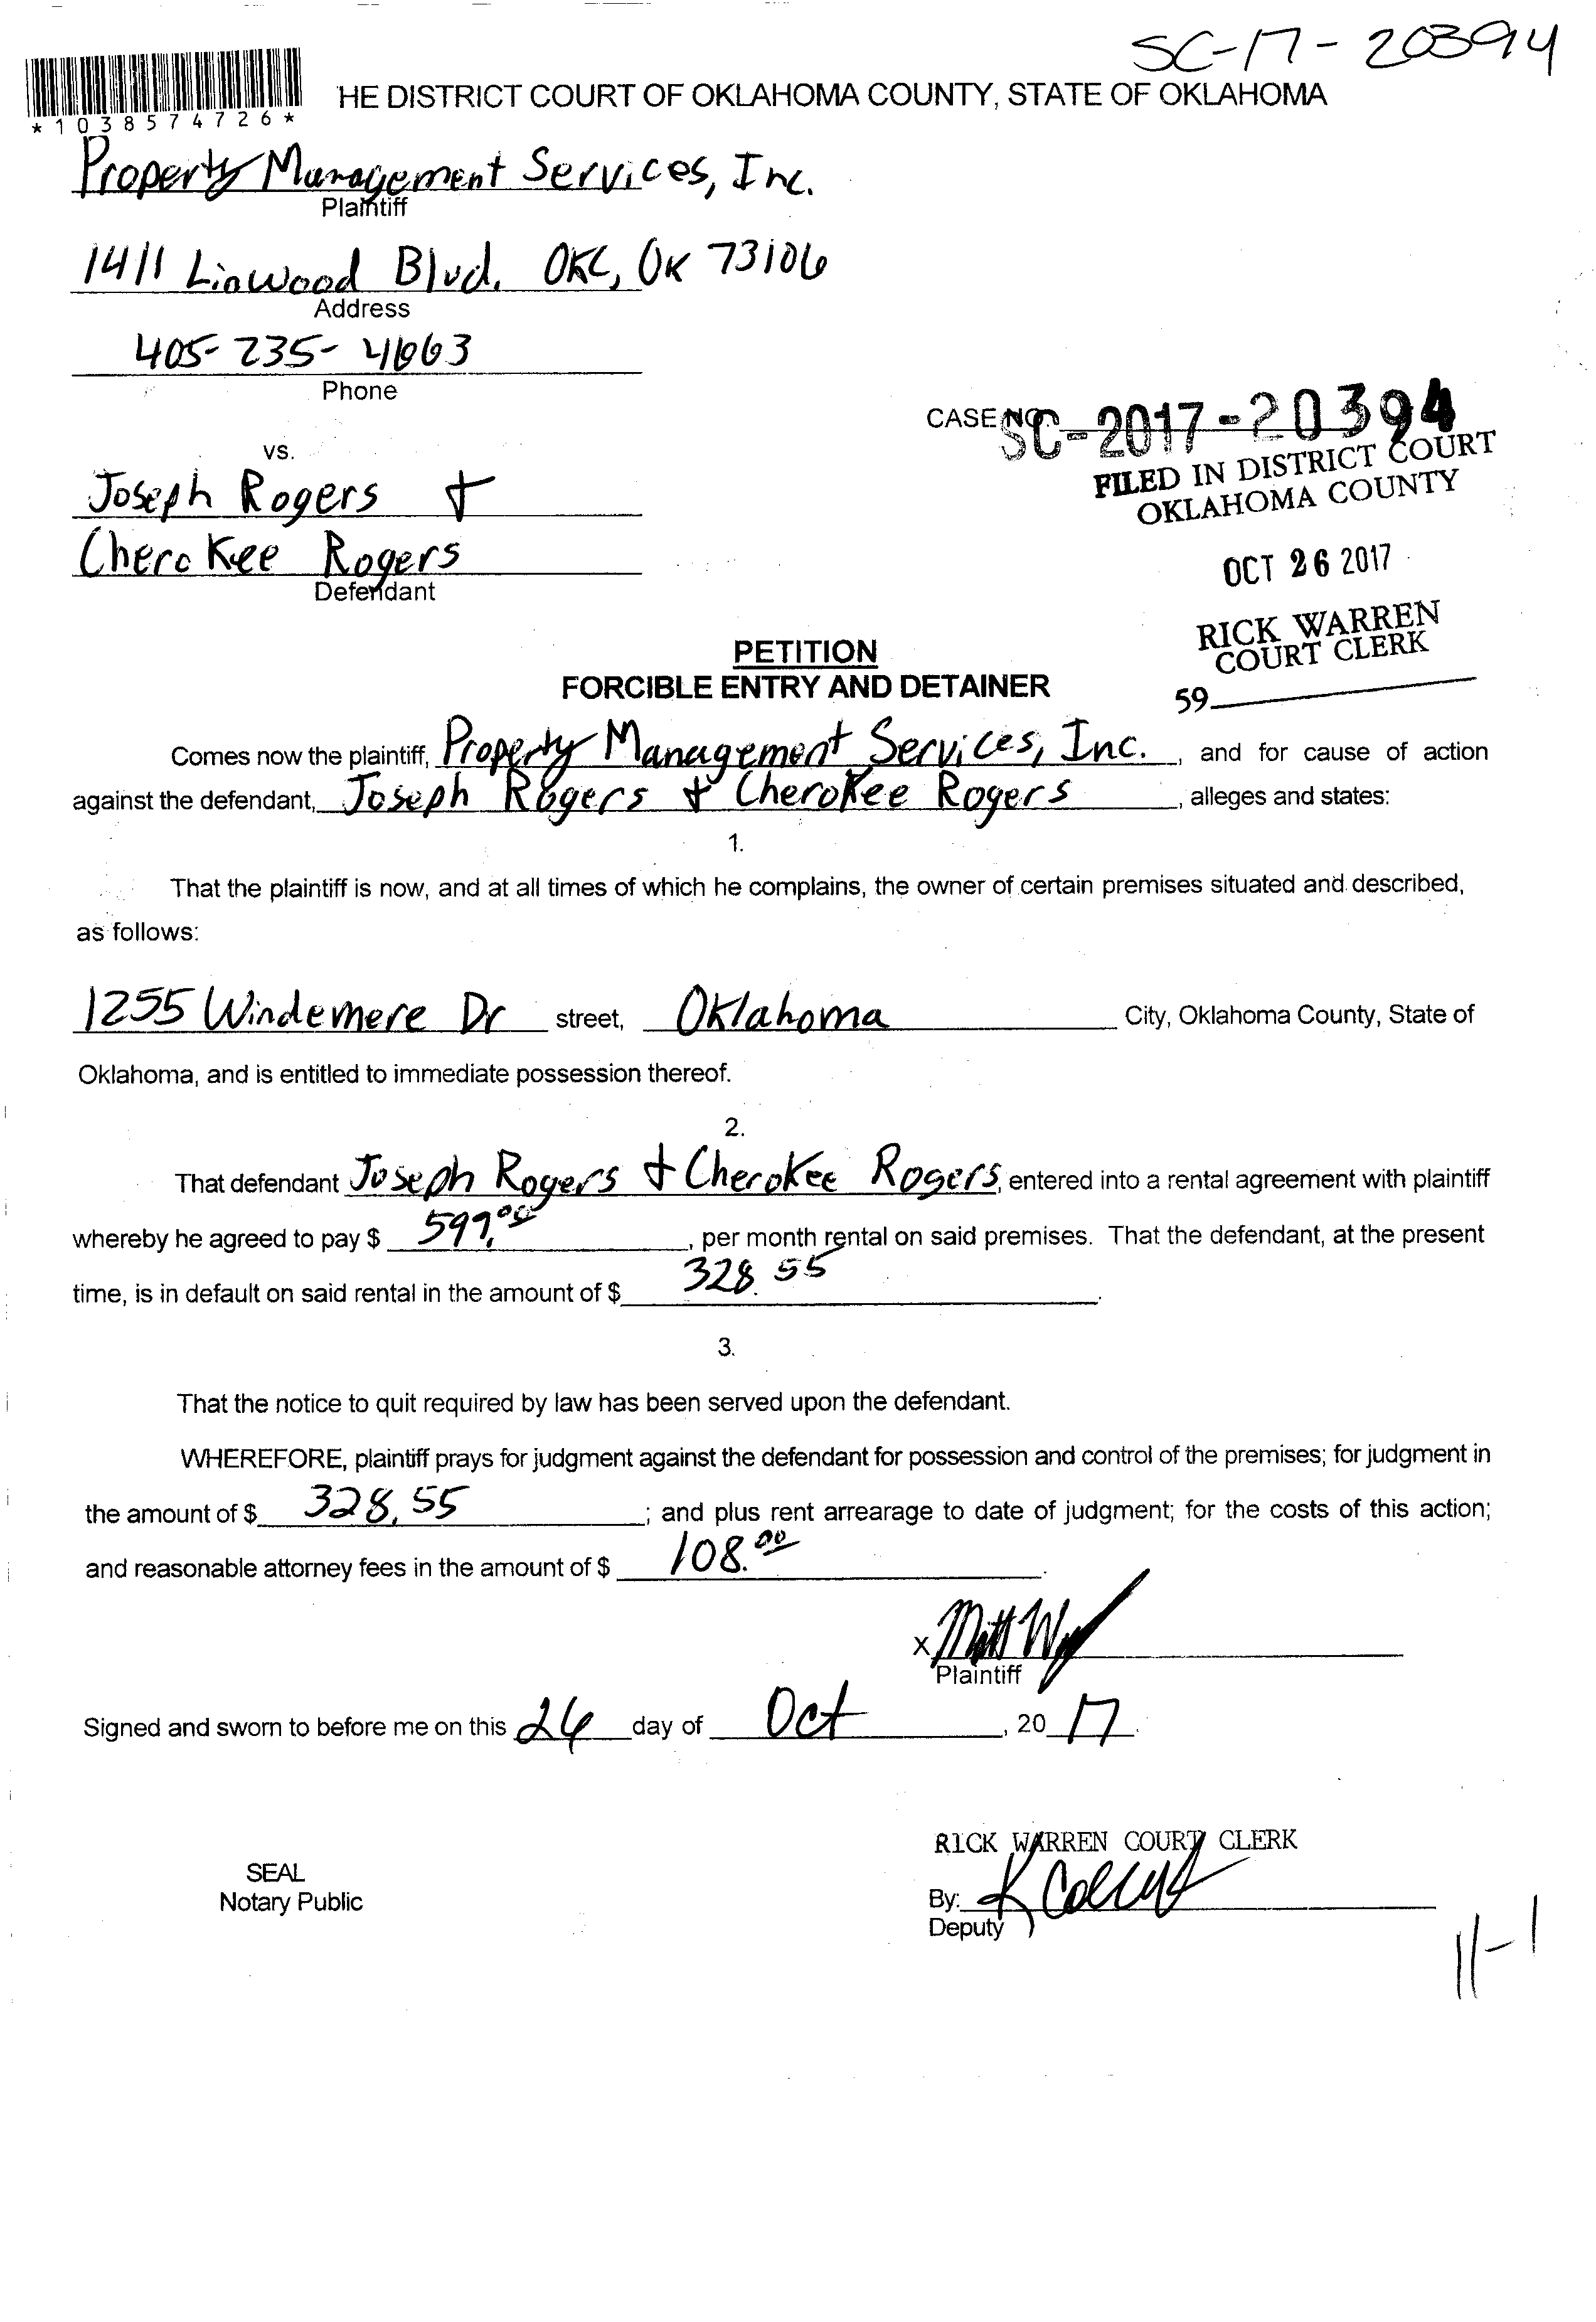 SC-17-20394
*1038574726*
HE DISTRICT COURT OF OKLAHOMA COUNTY, STATE OF OKLAHOMA
Property Management Services, Inc.
Plaintiff
1411 Linwood Blvd. OKC, OK 73106
Address
405-235-4663
Phone
CASE NO.
SC-2017-20394
vs.
FILED IN DISTRICT COURT
OKLAHOMA COUNTY
Joseph Rogers +
Cherokee Rogers
Defendant
OCT 26 2017
RICK WARREN
COURT CLERK
59
PETITION
FORCIBLE ENTRY AND DETAINER
Comes now the plaintiff, Property Management Services, Inc., and for cause of action
against the defendant, Joseph Rogers + Cherokee Rogers, alleges and states:
1.
That the plaintiff is now, and at all times of which he complains, the owner of certain premises situated and described,
as follows:
1255 Windemere Dr street, Oklahoma City, Oklahoma County, State of
Oklahoma, and is entitled to immediate possession thereof.
2.
That defendant Joseph Rogers + Cherokee Rogers, entered into a rental agreement with plaintiff
whereby he agreed to pay $ 599.00, per month rental on said premises. That the defendant, at the present
time, is in default on said rental in the amount of $ 328.55.
3.
That the notice to quit required by law has been served upon the defendant.
WHEREFORE, plaintiff prays for judgment against the defendant for possession and control of the premises; for judgment in
the amount of $ 328.55; and plus rent arrearage to date of judgment; for the costs of this action;
and reasonable attorney fees in the amount of $ 108.00.
x Matt
Plaintiff
Signed and sworn to before me on this 26 day of Oct, 2017.
RICK WARREN COURT CLERK
SEAL
Notary Public
By: K
Deputy
11-1